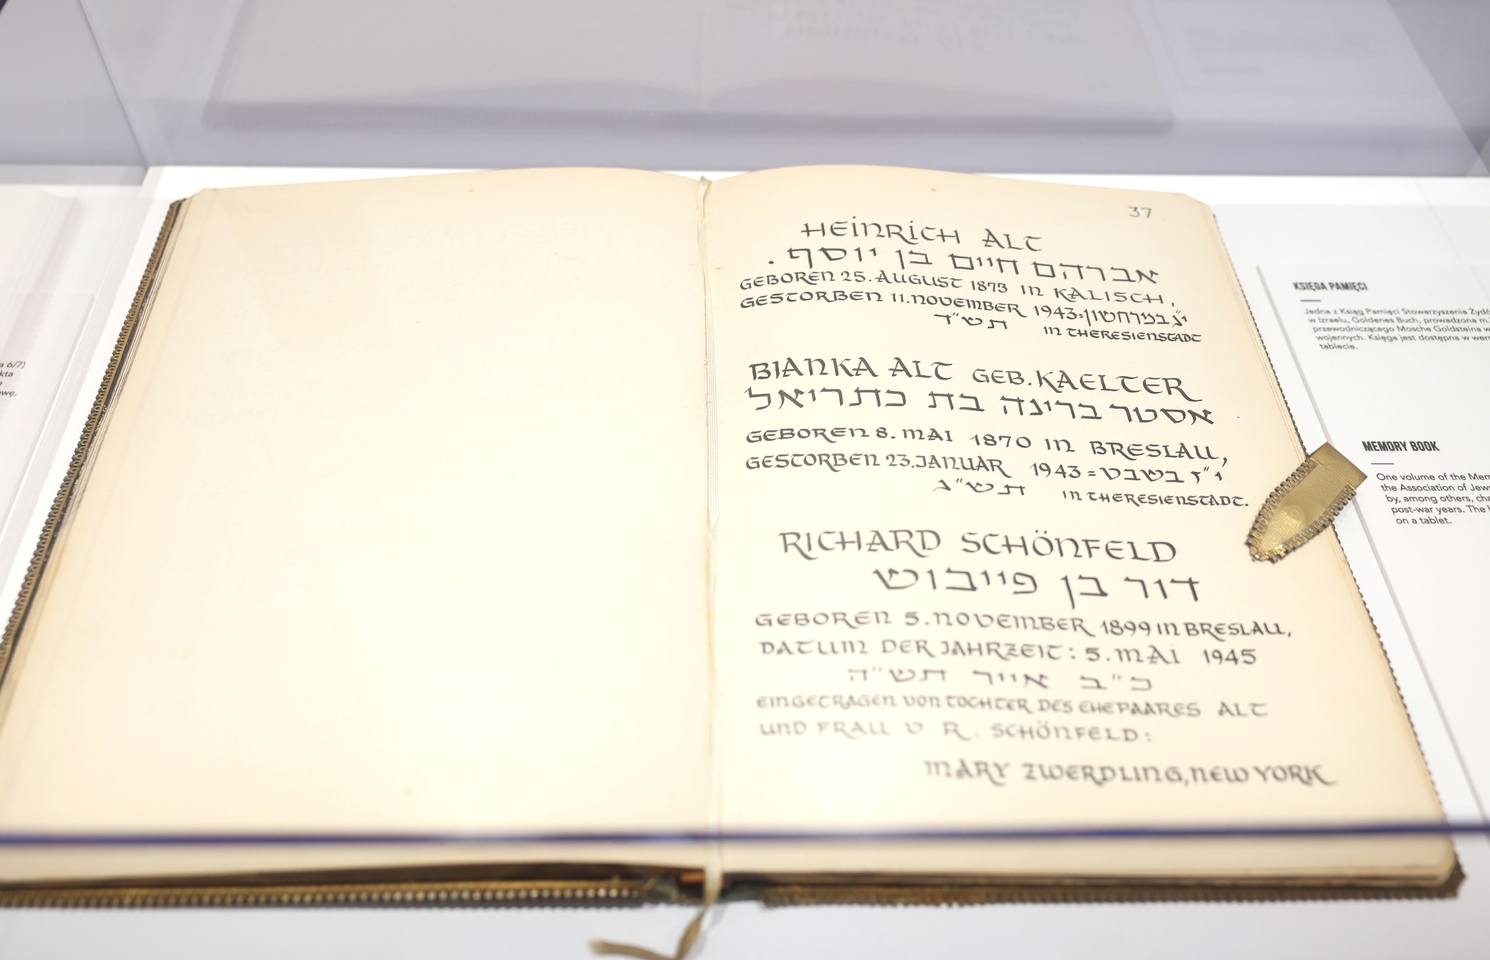 37
HEINRICH ALT
אברהם חיים בן יוסף.
GEBOREN 25. AUGUST 1873 IN KALISCH,
GESTORBEN 11. NOVEMBER 1943 = י"ג במרחשון
תש"ד IN THERESIENSTADT
BIANKA ALT GEB. KAELTER
אסטר בריינה בת כתריאל
GEBOREN 8. MAI 1870 IN BRESLAU,
GESTORBEN 23. JANUAR 1943 = י"ז בשבט
תש"ג IN THERESIENSTADT.
RICHARD SCHÖNFELD
דוד בן פייבוש
GEBOREN 5. NOVEMBER 1899 IN BRESLAU,
DATUM DER JAHRZEIT: 5. MAI 1945
כ"ב אייר תש"ה
EINGETRAGEN VON TOCHTER DES EHEPAARES ALT
UND FRAU V. R. SCHÖNFELD:
MARY ZWERDLING, NEW YORK
KSIĘGA PAMIĘCI
Jedna z Ksiąg Pamięci Stowarzyszenia
w Izraelu, Goldenes Buch, prowadzona m.
przewodniczącego Mosche Goldsteina w
wojennych. Księga jest dostępna w
tablecie.
MEMORY BOOK
One volume of the
the Association of
by, among others,
post-war years. The
on a tablet.
a 6/7)